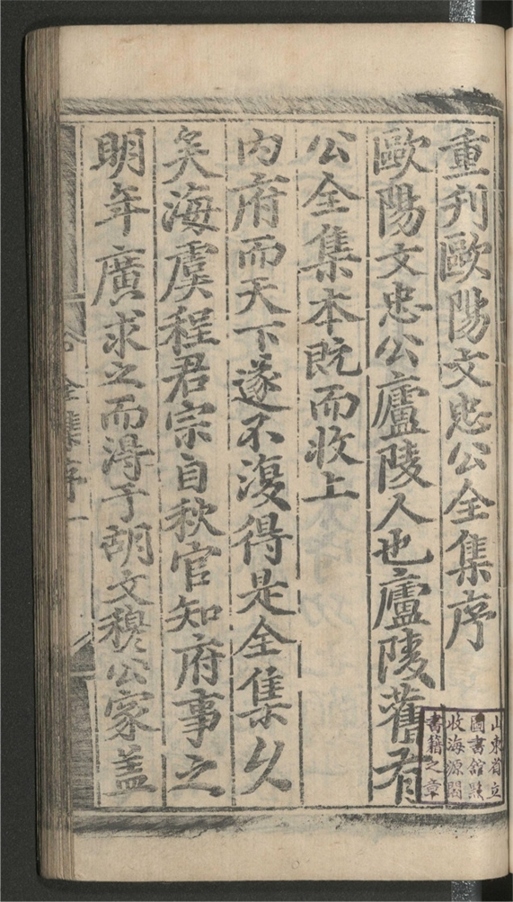 重刊歐陽文忠公全集序
歐陽文忠公廬陵人也廬陵舊有
公全集本既而收上
內府而天下遂不復得是全集久
矣海虞程君宗自秋官知府事之
明年廣求之而得于胡文穆公家蓋
全集序一
山東省立
圖書館點
收海源閣
書籍之章